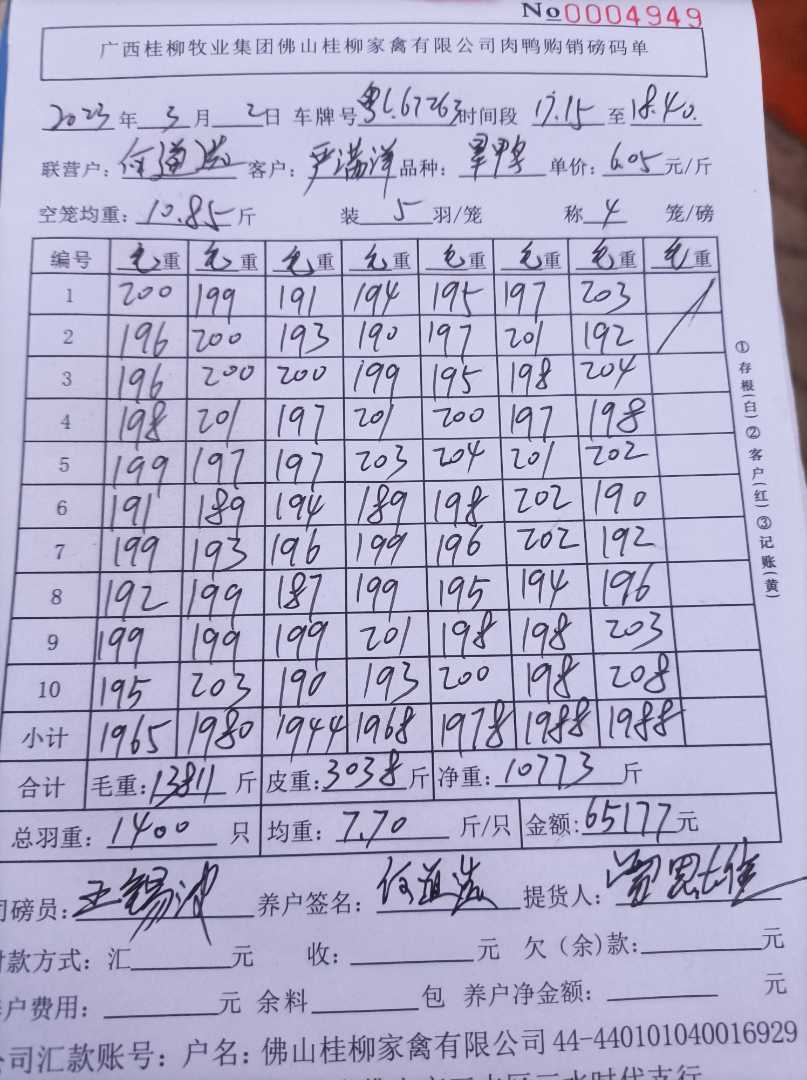 No0004949
广西桂柳牧业集团佛山桂柳家禽有限公司肉鸭购销磅码单
2023年3月2日 车牌号粤L67263时间段 17.15至18.40.
联营户: 何道 客户: 严满洋 品种: 单价: 6.05元/斤
空笼均重: 10.85斤 装5羽/笼 称4笼/磅
编号 毛重 毛重 毛重 毛重 毛重 毛重 毛重 毛重
1 200 199 191 194 195 197 203
2 196 200 193 190 197 201 192
3 196 200 200 199 195 198 204
4 198 201 197 201 200 197 198
5 199 197 197 203 204 201 202
6 191 189 194 189 198 202 190
7 199 193 196 199 196 202 192
8 192 199 187 199 195 194 196
9 199 199 199 201 198 198 203
10 195 203 190 193 200 198 208
小计 1965 1980 1944 1968 1978 1988 1988
合计 毛重:13811斤 皮重:3038斤 净重:10773斤
总羽重: 1400只 均重: 7.70斤/只 金额:65177元
司磅员: 王锡波 养户签名: 何道 提货人:
付款方式: 汇 元 收: 元 欠(余)款: 元
养户费用: 元 余料 包 养户净金额: 元
公司汇款账号: 户名: 佛山桂柳家禽有限公司44-440101040016929
时代支行
①存根(白)②客户(红)③记账(黄)